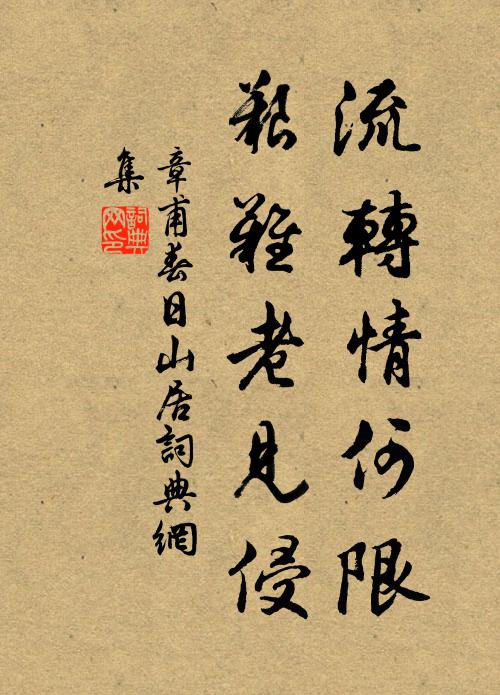 流轉情何限
艱難老見侵
章甫春日山居詞典網
集
詞典
网印